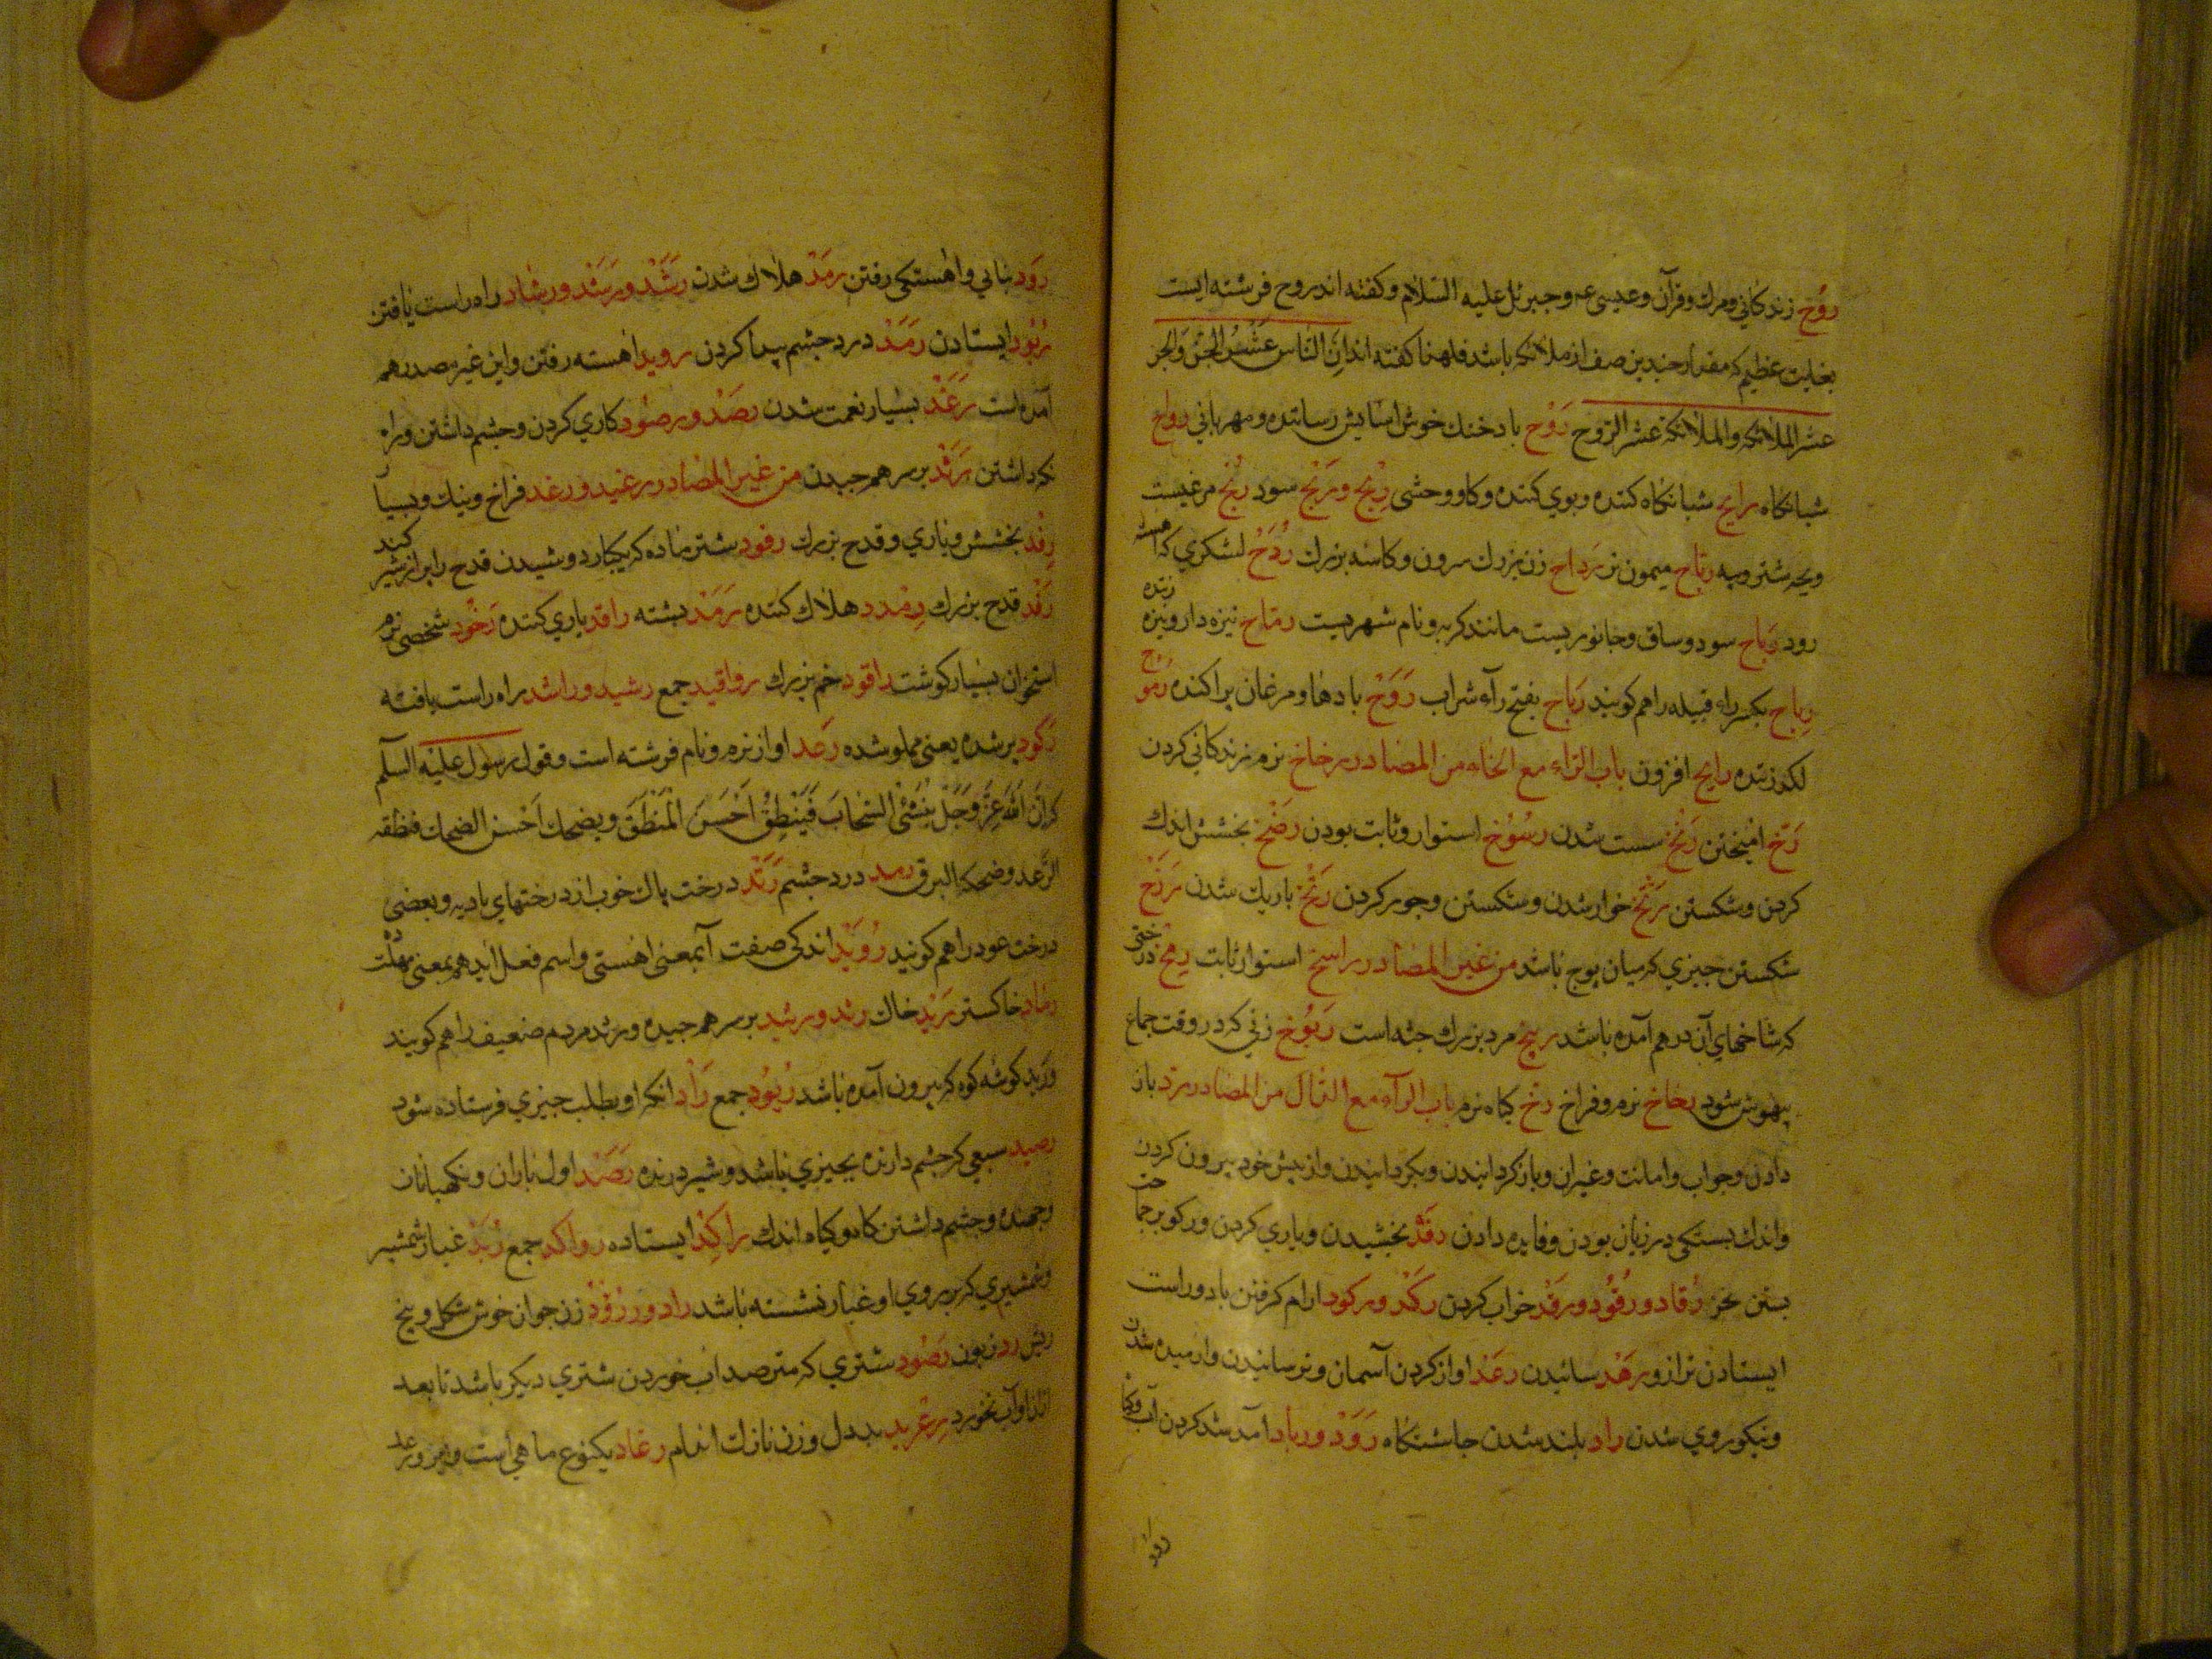 روُح زندكاني ومرك وقرآن وعيسى عه وجبرئل عليه السّلام وكفته اند روح فرشته ايست
بغايت عظيم كه مقدار چندين صف از ملائكه باشد فلهذا كفته اند اِنّ النّاس عُشْرُ الجنّ والجن
عشر الملائكه والملائكة عشر الرّوح رَوْح باد خنك خوش آسايش رساننده ومهرباني رواح
شبانكاه رايح شبانكاه كننده وبوي كننده وكاو وحشى رِبْح ورَبَح سود رُبَح مرغيست
وبچه شتر وبه رباح ميمون نر رَداح زن بزرك سرون وكاسه بزرك رُدُح لشكري كه اهسته
رود رَباح سود وساق وجانوريست مانند كربه ونام شهريست رماح نيزه دار ونيزه زننده
رِباح بكسر راء قبيله را هم كويند رَياح بفتح رآء شراب رَوَح بادها ومرغان پراكنده رَموح
لكد زننده رابح افزون باب الرّاء مع الخاء من المصادر رخاخ نرم زندكاني كردن
رَتخ آميختن رَنخ سست شدن رسُوُخ استوار وثابت بودن رضْخ بخشش اندك
كردن وشكستن خوار شدن وشكستن وجور كردن باريك شدن
شكستن چيزي كه ميان پوچ باشد من غير المصادر راسخ استوار ثابت رِمخ درختى
كه شاخهاي آن در هم آمده باشد ربيخ مرد بزرك جثه است رَبُوُخ زني كه در وقت جماع
بيهوش شود رخاخ نرم وفراخ رخ كياه نرم باب الرآء مع الدّال من المصادر رَدّ باز
دادن وجواب وامانت وغير آن وباز كردانيدن وبكردانيدن واز پيش خود بيرون كردن
واندك بستكى در زبان بودن وفايده دادن رفد بخشيدن وياري كردن وركو بر جراحت
بستن رُقاد ورُقُود ورَقد خواب كردن ركد وركود آرام كرفتن باد وراست
ايستادن ترازو رهد سائيدن رعَد آواز كردن آسمان وترسانيدن وآرميده شدن
ونيكو روي شدن راد بلند شدن چاشتكاه رَوَد ورياد آمد شد كردن آب وكيا
رود
رَود بناني واهستكى رفتن رمَد هلاك شدن رَشَد ورُشد ورشاد راه راست يافتن
رُبُود ايستادن رَمَد درد چشم پيدا كردن رويد اهسته رفتن واين غير مصدر هم
آمده است رَغَد بسيار نعمت شدن رصَد ورصود كاري كردن وچشم داشتن وراه
نكه داشتن رَثْد بر سر هم چيدن من غير المصادر رغيد ورغد فراخ ونيك وبسيار
رِفْد بخشش وياري وقدح بزرك رفود شتر ماده كه بيكبار دوشيدن قدح را پر از شير كند
رَفْد قدح بزرك رِمْدد هلاك كننده رَمَد پشته رافد ياري كننده رَخُود شخصى نرم
استخوان بسيار كوشت راقود خم بزرك رواقيد جمع رشيد وراشد راه راست يافته
رَكُود پر شده يعنى مملو شده رعد آواز نرم ونام فرشته است وقول رسول عليه السّلم
كه اِنّ اللّه عزّ وَجَلّ يُنْشئُ السّحابَ فَيَنْطِقُ اَحْسَنَ الْمَنْطَقَ ويضحك اَحْسن الضحك فنطقه
الرّعد وضحكه البرق رمد درد چشم رَنْد درخت پاك خوب از درختهاي باديه وبعضى
درخت عود را هم كويند رُوَيْد اندكى صفت آ بمعنى اهستى واسم فعل آيد هم بمعنى مهلت ده
رماد خاكستر رَبْد خاك رثد ورثيد بر سر هم چيده ورثد مردم ضعيف را هم كويند
ورَيد كوشه كوه كه بيرون آمده باشد رُيوُد جمع رائد انكه او بطلب چيزي فرستاده شود
رصيد سبعى كه چشم دارنده بچيزي باشد وشير درنده رَصَد اول باران ونكهبانان
وچشم داشتن كاه وكياه اندك راكِد ايستاده رواكد جمع رُبَد غبار شمشير
وشمشيري كه بر روي او غبار نشسته باشد راد ورؤد زن جوان خوش شكل وبيخ
ريش رد زبون رَصُود شتري كه مترصد آب خوردن شتري ديكر باشد تا بعد
ازاو آب بخورد رِعْديد بددل وزن نازك اندام رعاد يكنوع ماهى است وابر ورعد